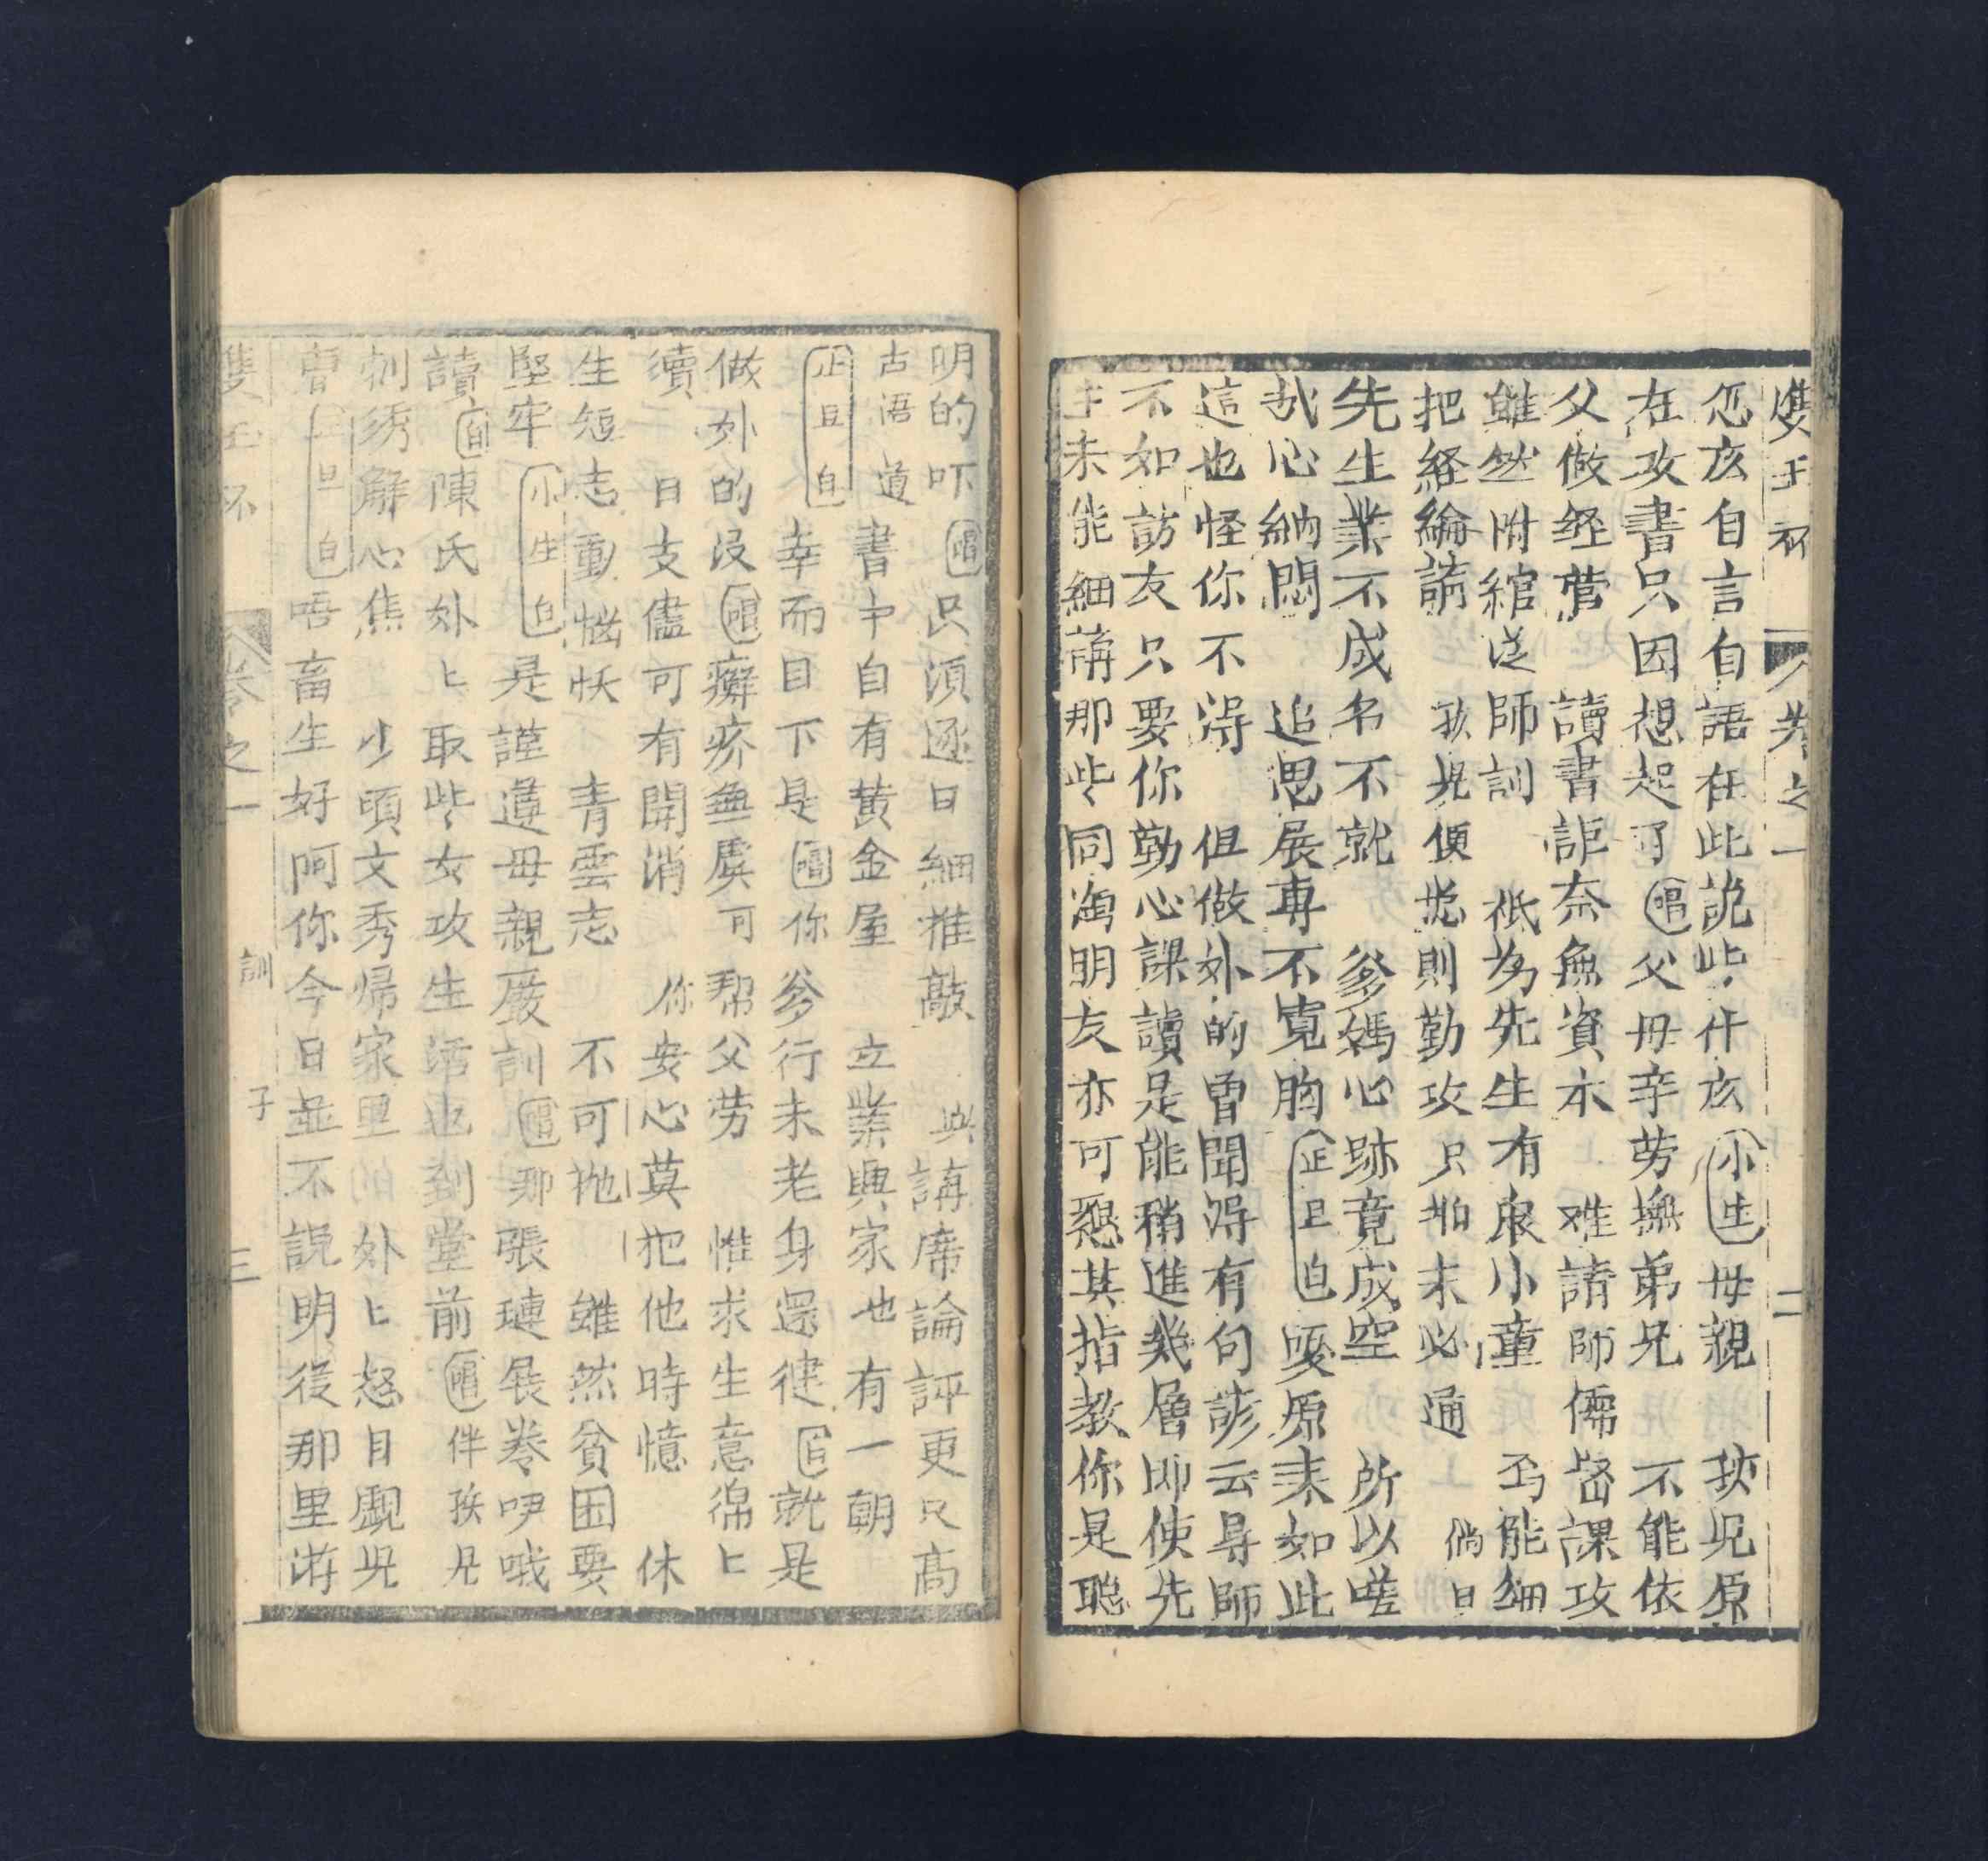 雙玉杯 卷之一 二
怎庅自言自語在此說些什庅 小生 母親 孩兒原
在攻書只因想起了 唱 父母辛劳撫弟兄 不能依
父做经营 讀書詎奈無資本 难請師儒督課攻
雖然附綰送師訓 祇為先生有良小童 不能细
把経綸講 孩児便悲則勤攻只怕未必通 倘日
先生業不成名不就 爹媽心跡竟成空 所以嗟
哉心納悶 追思展專不寛胸 正旦白 嗄原来如此
這也怪你不淂 但做外的曾聞淂有句諺云尋師
不如訪友只要你勤心課讀是能稍進幾層即使先
生未能細講那些同淘明友亦可懇其指教你是聪
明的吓 唱 只須逐日細推敲 與講席論評更只高
古语道 書中自有黄金屋 立業興家也有一朝
正旦白 幸而目下是 唱 你爹行未老身還健 白 就是
做外的没 唱 癬疥無虞可帮父劳 惟求生意綿匕
續 日支儘可有開消 你安心莫把他時憶 休
生短志動惱妖 青雲志 不可抛 雖然貧困要
堅牢 小生白 是謹遵母親嚴訓 唱 那張璉展卷咿哦
讀 白 陳氏外匕取些女攻生活也到堂前 唱 伴孩兒
刺綉解心焦 少頃文秀帰家里的外匕怒目觑兒
曹 正旦白 唔畜生好阿你今日並不説明後那里游
雙玉杯 卷之一 訓子 三